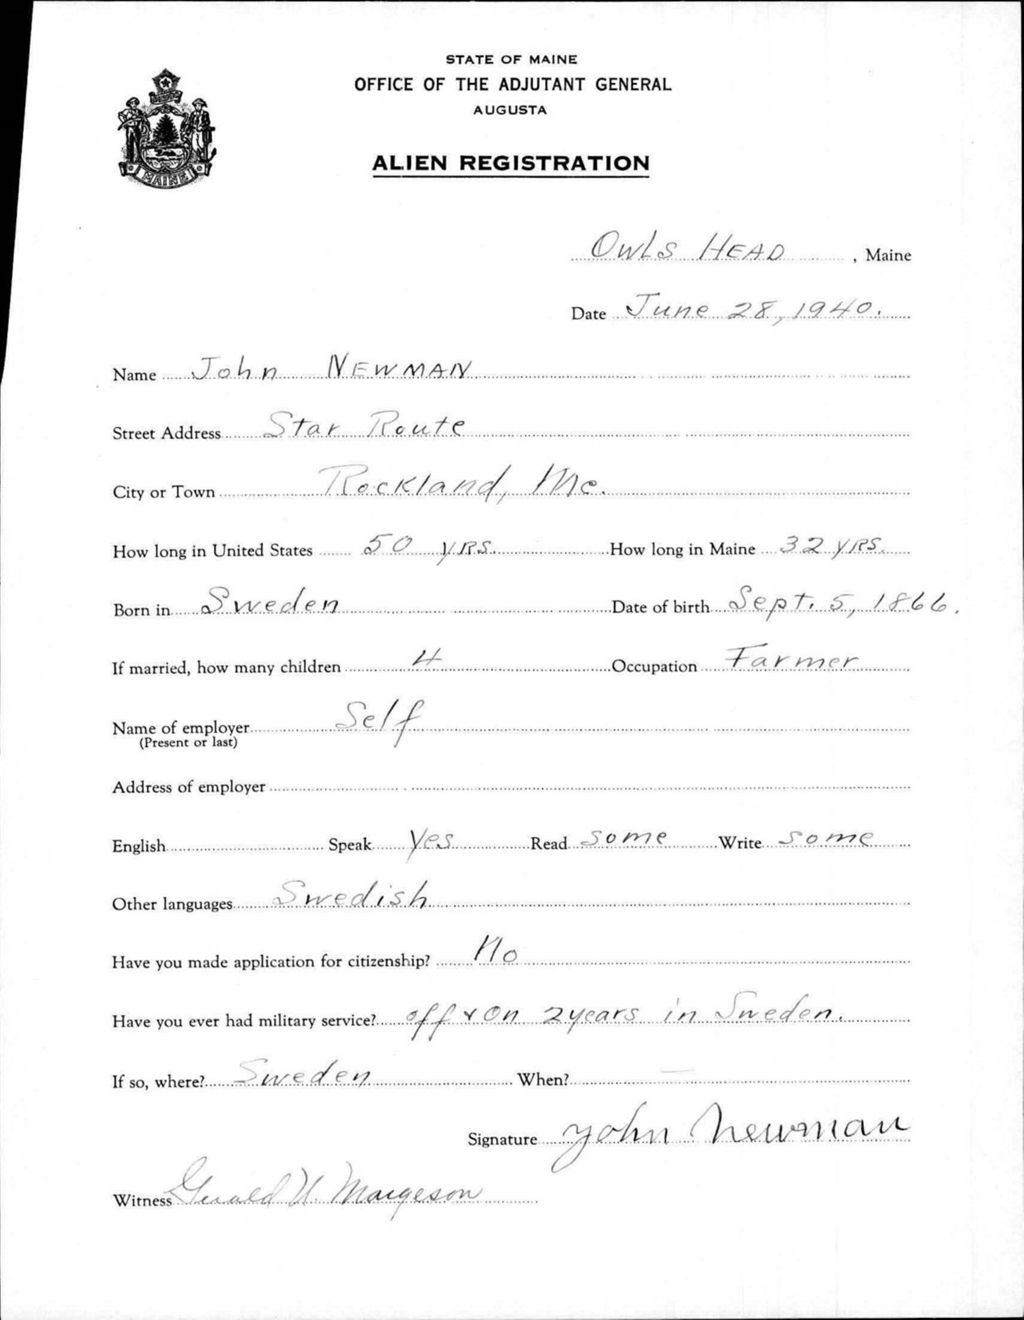 STATE OF MAINE
OFFICE OF THE ADJUTANT GENERAL
AUGUSTA
ALIEN REGISTRATION
MAINE
Owls Head, Maine
Date June 28, 1940.
Name John Newman
Street Address Star Route
City or Town Rockland, Me.
How long in United States 50 yrs. How long in Maine 32 yrs.
Born in Sweden Date of birth Sept. 5, 1866.
If married, how many children 4 Occupation Farmer
Name of employer Self
(Present or last)
Address of employer
English Speak Yes Read Some Write Some
Other languages Swedish
Have you made application for citizenship? No
Have you ever had military service? off & on 2 years in Sweden.
If so, where? Sweden When? —
Signature John Newman
Witness Gerald U. Margeson